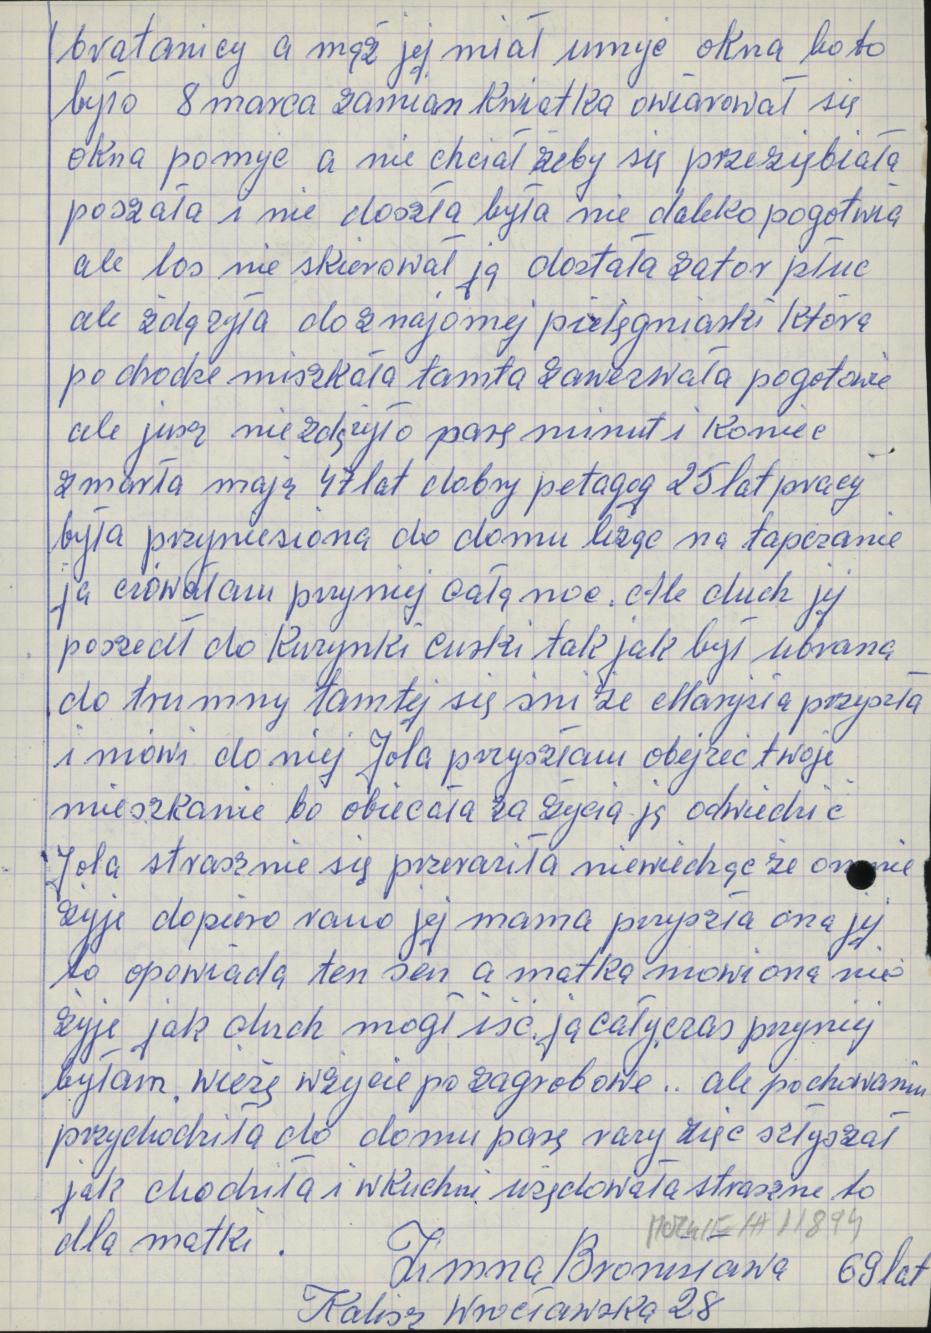 bratanicy a mąż jej miał umyć okna bo to
było 8 marca zamian kwiatka owiarował się
okna pomyć a nie chciał żeby się przeziębiała
poszała i nie doszła była nie daleko pogotwia
ale los nie skierował ją dostała zator płuc
ale zdążyła do znajomej pielęgniarki która
po chodze miszkała tamta zawezwała pogotowie
ale jusz nie zdążyło parę minut i koniec
zmarła mają 47 lat dobry petagog 25 lat pracy
była przyniesiona do domu liżąc na tapczanie
ja czówałam przyniej całą noc. Ale duch jej
poszedł do kuzynki cuski tak jak był ubrana
do trumny tamtej się śni że Marysia przyszła
i mówi do niej Jola przyszłam obejżeć twoje
mieszkanie bo obiecała za życia ją odwiedzić
Jola strasznie się przeraziła niewiedząc że on nie
żyje dopiero rano jej mama przyszła ona jej
to opowiada ten sen a matka mowi ona nie
żyje jak duch mogł iść. ja cały czas przyniej
byłam. wieżę w życie po zagrobowe.. ale pochowaniu
przychodziła do domu parę razy zięć słyszał
jak chodziła i w kuchni użędowała straszne to
dla matki.
11894
Zimna Bronisława 69 lat
Kalisz Wrocławska 28